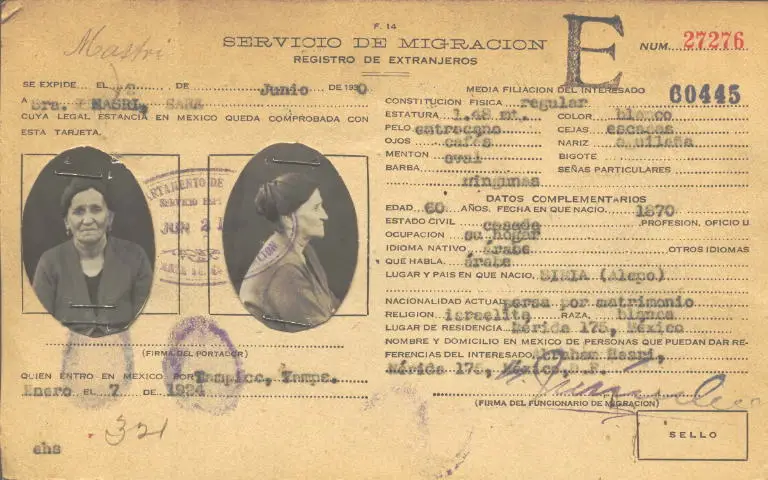 Mastri
F. 14
SERVICIO DE MIGRACION
REGISTRO DE EXTRANJEROS
E
NUM. 27276
60445
SE EXPIDE EL DE Junio DE 1930
A Sra. MASRI, SARA
CUYA LEGAL ESTANCIA EN MEXICO QUEDA COMPROBADA CON
ESTA TARJETA.
JUN 21
(FIRMA DEL PORTADOR)
QUIEN ENTRO EN MEXICO POR Tampico, Tamps.
Enero EL 7 DE 1924
321
ehs
MEDIA FILIACION DEL INTERESADO
CONSTITUCION FISICA regular
ESTATURA 1.48 mt. COLOR blanco
PELO entrecano CEJAS escasas
OJOS cafés NARIZ aguileña
MENTON oval BIGOTE
BARBA SEÑAS PARTICULARES
ningunas
DATOS COMPLEMENTARIOS
EDAD 60 AÑOS. FECHA EN QUE NACIO. 1870
ESTADO CIVIL casada PROFESION, OFICIO U
OCUPACION su hogar
IDIOMA NATIVO árabe OTROS IDIOMAS
QUE HABLA. árabe
LUGAR Y PAIS EN QUE NACIO. SIRIA (Alepo)
NACIONALIDAD ACTUAL persa por matrimonio
RELIGION israelita RAZA. blanca
LUGAR DE RESIDENCIA Mérida 175, México
NOMBRE Y DOMICILIO EN MEXICO DE PERSONAS QUE PUEDAN DAR RE-
FERENCIAS DEL INTERESADO Abraham Masri,
Mérida 175, México, D.F.
(FIRMA DEL FUNCIONARIO DE MIGRACION)
SELLO